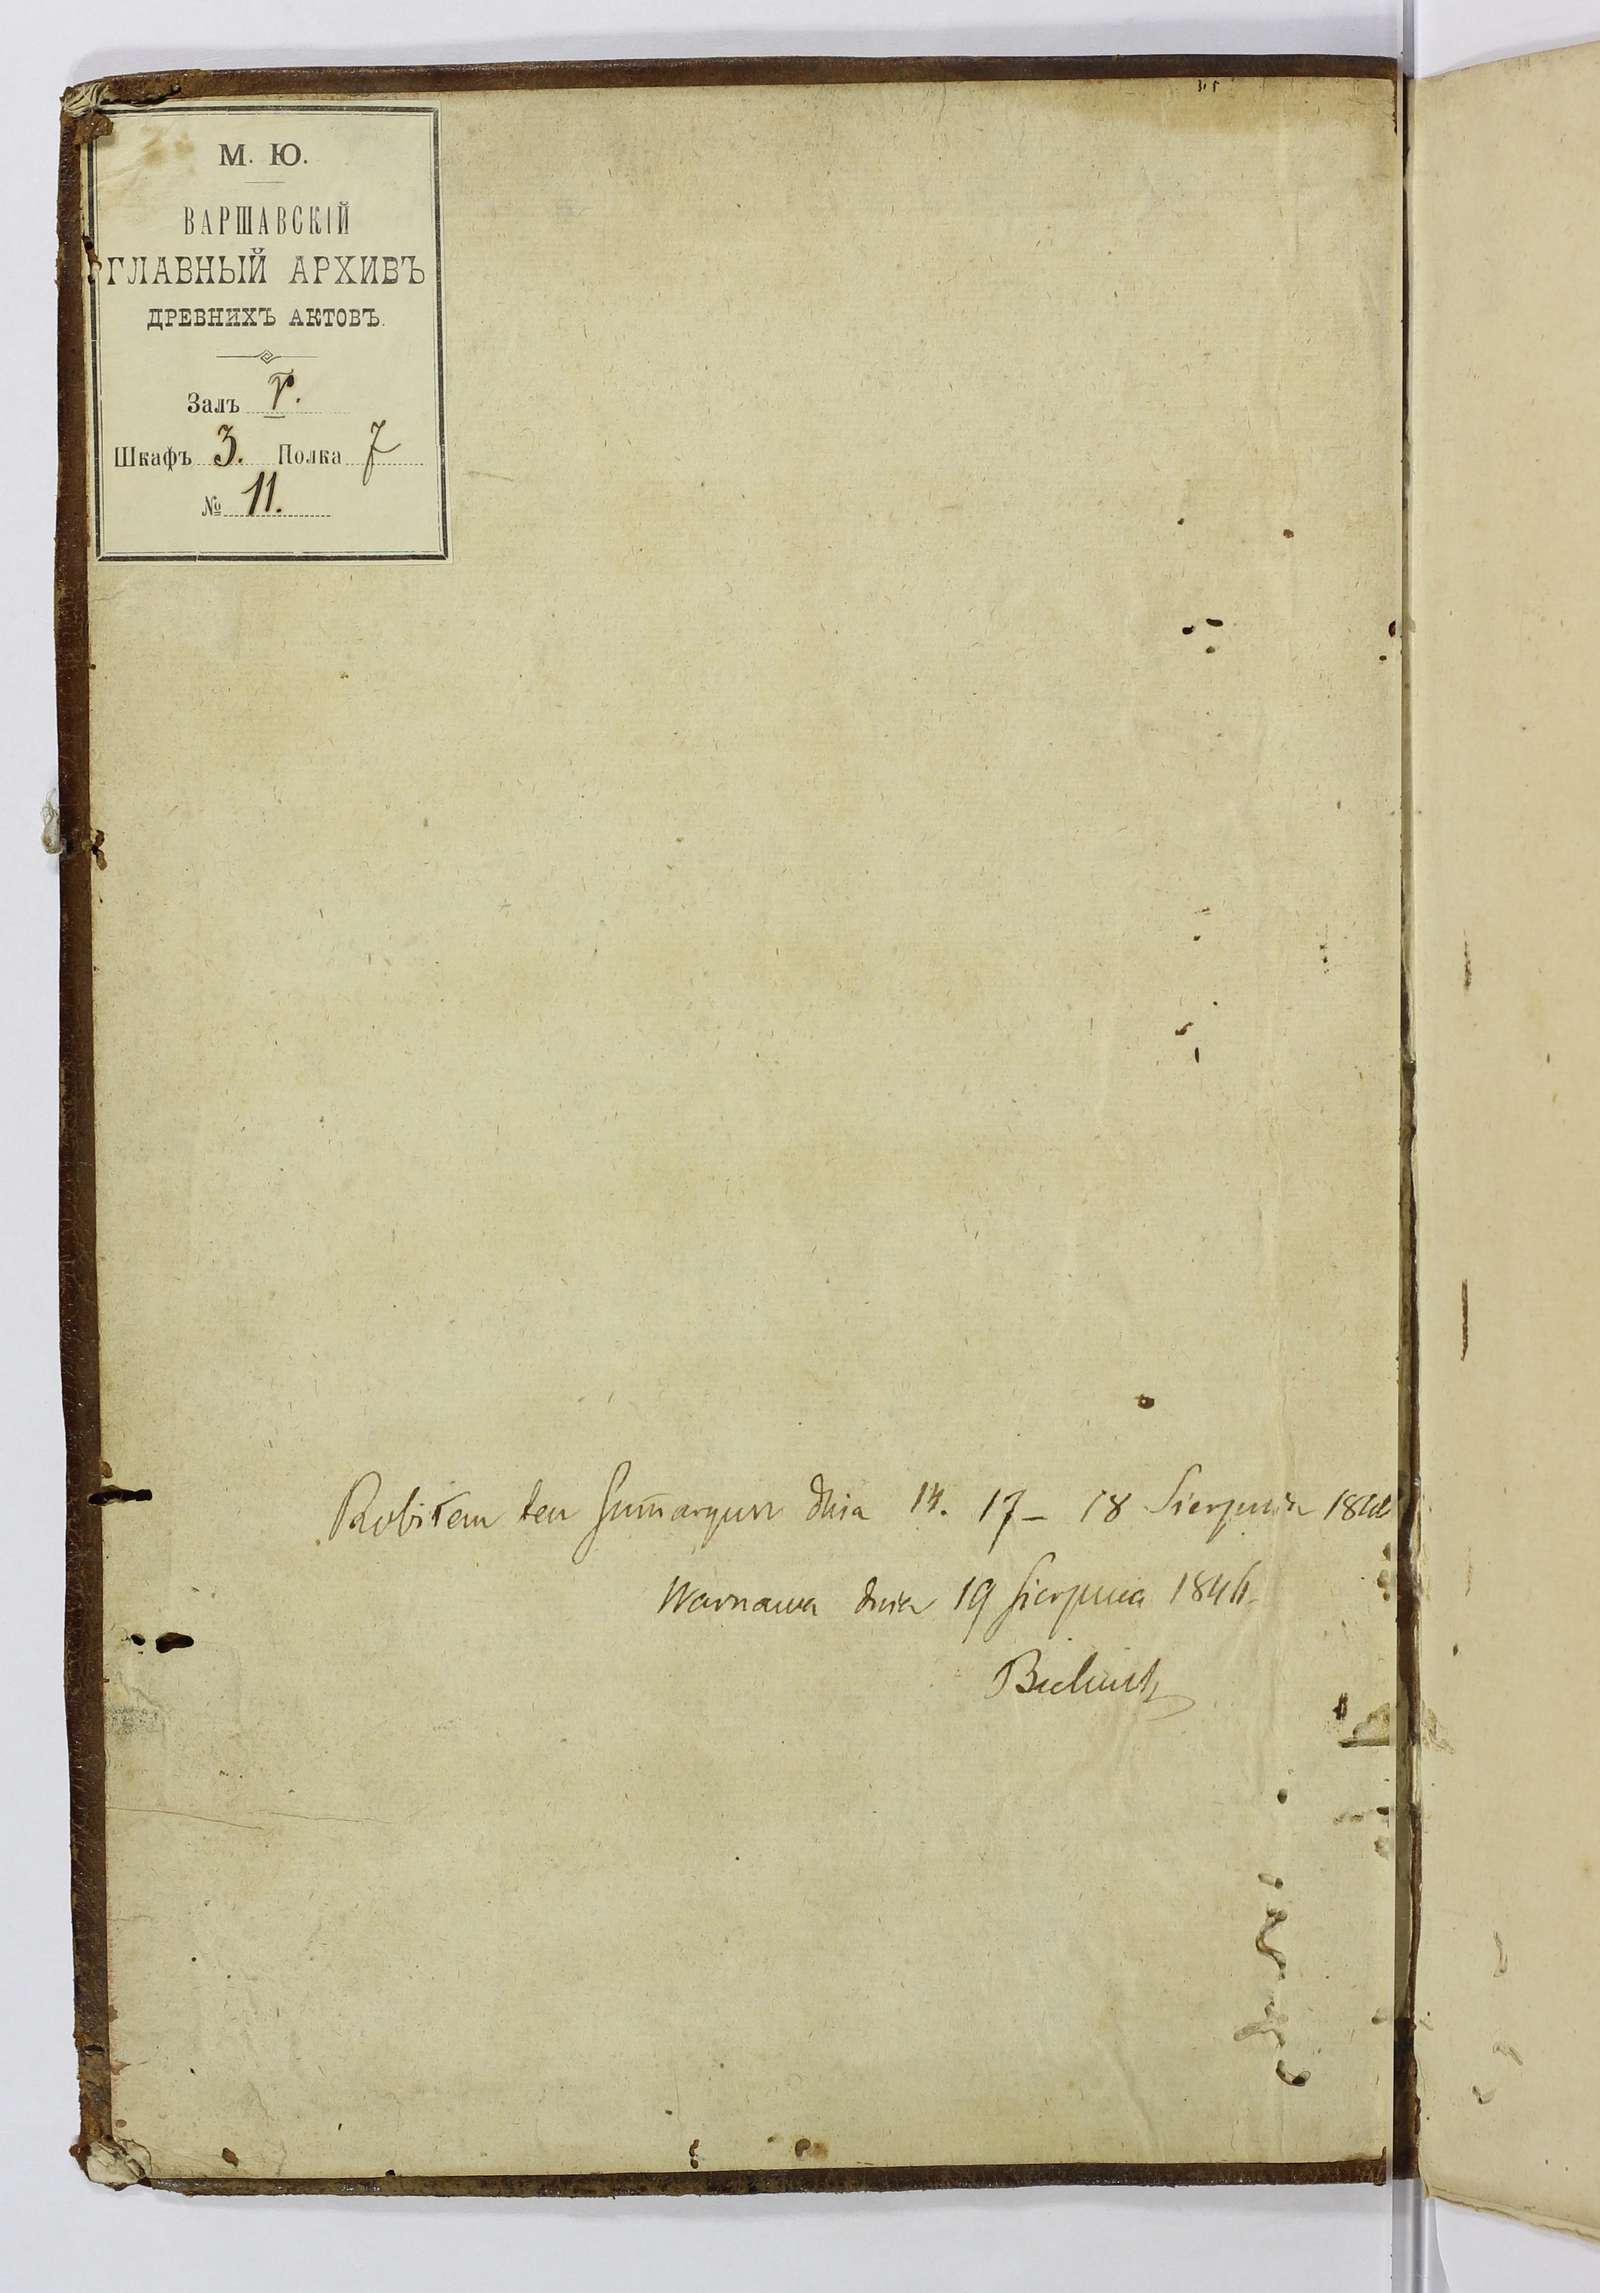 М. Ю.
ВАРШАВСКІЙ
ГЛАВНЫЙ АРХИВЪ
ДРЕВНИХЪ АКТОВЪ.
Залъ
Шкафъ 3. Полка 7
№ 11.
Robiłem ten Sum̃aryusz dnia 14. 17 – 18 Sierpnia
Warszawa dnia 19 Sierpnia 184